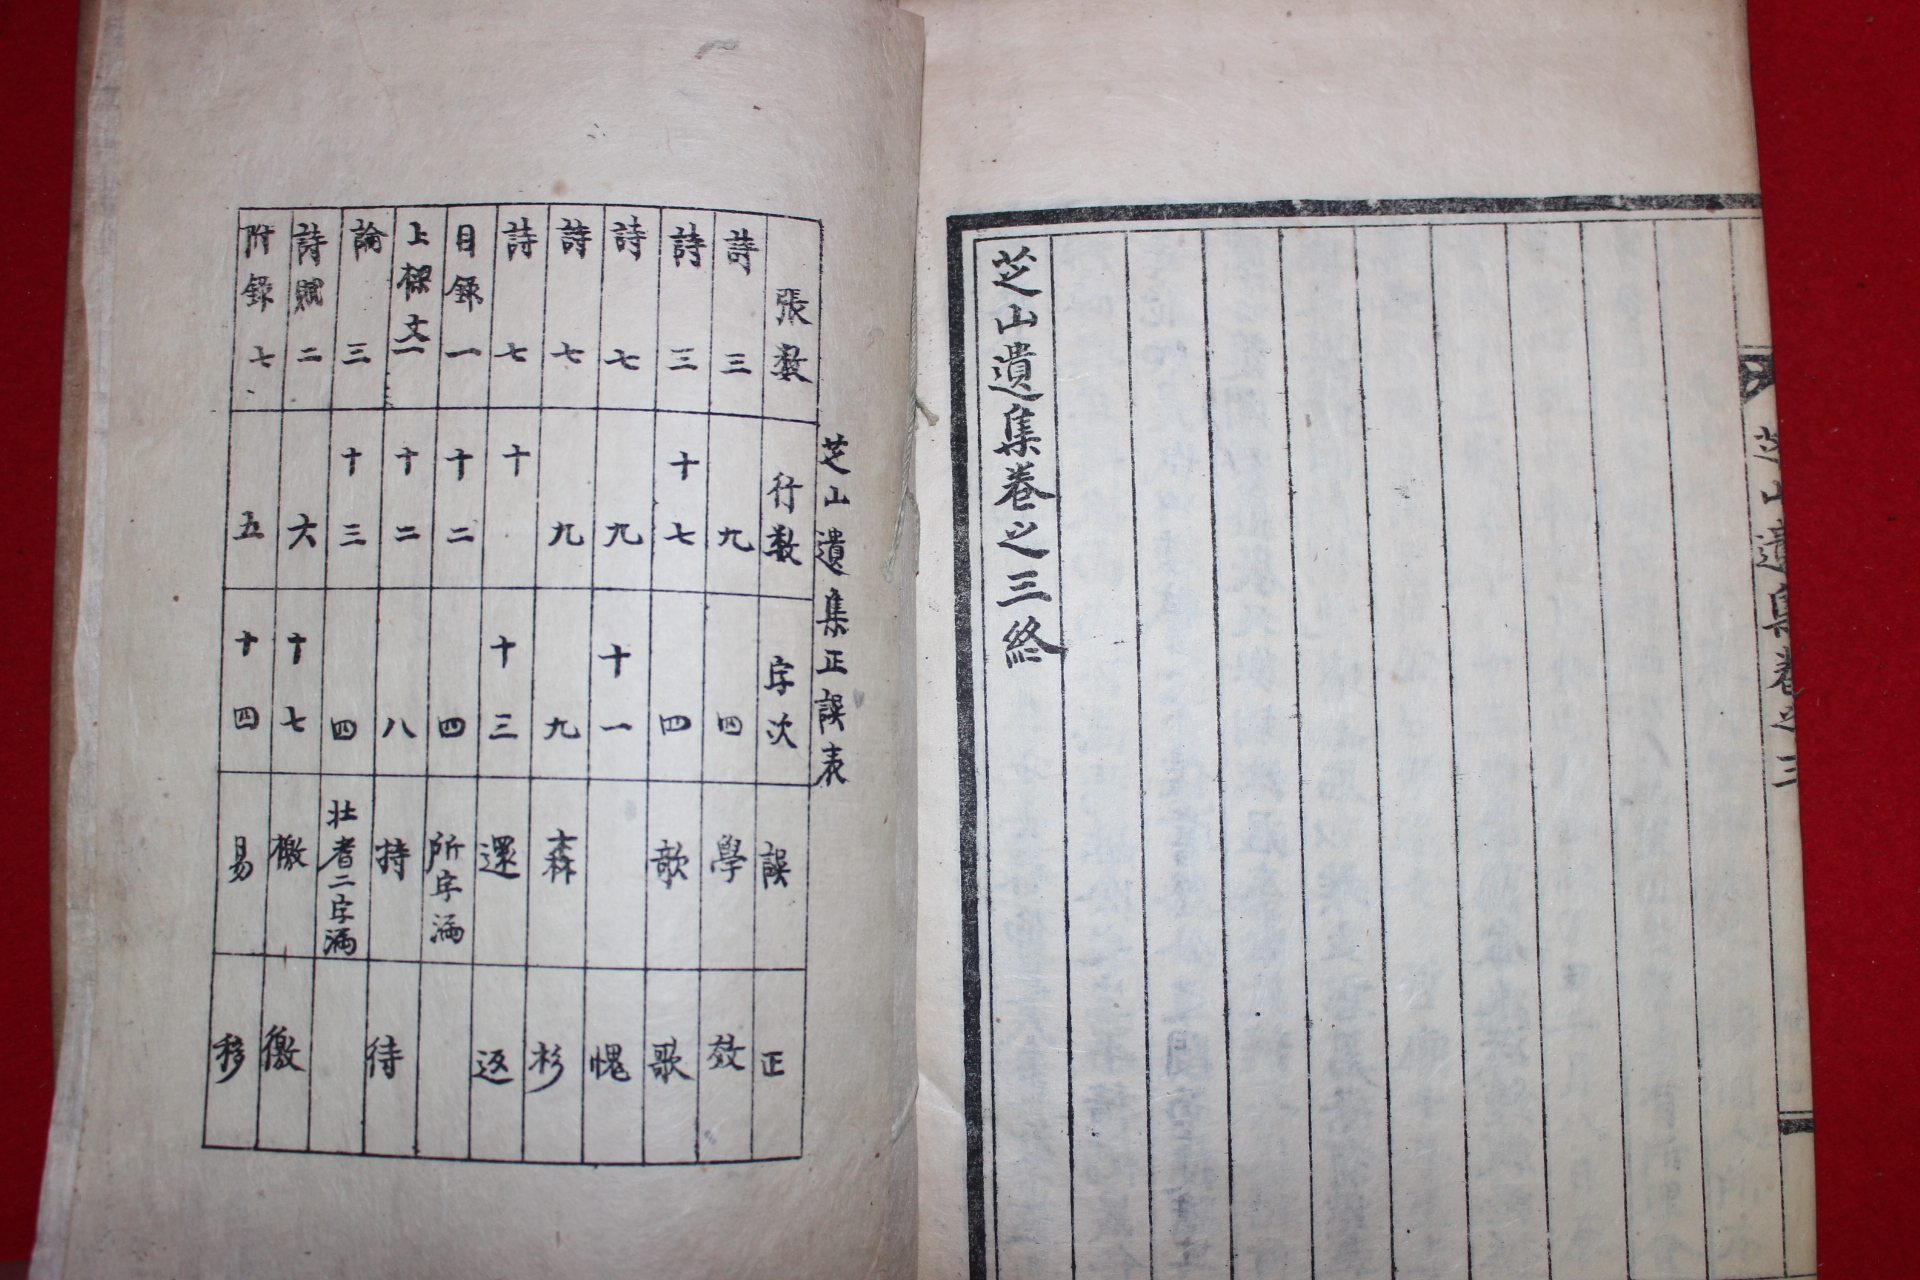 芝山遺集卷之三
芝山遺集卷之三終
芝山遺集正誤表
張数 行数 字次 誤 正
詩三 九 四 學 效
詩三 十七 四 歆 歌
詩七 九 十一 愧
詩七 九 九 森 杉
詩七 十 十三 還 返
目録一 十二 四 所字漏
上樑文一 十二 八 持 待
論三 十三 四 壮者二字漏
詩賦二 六 十七 檄 徼
附録七 五 十四 易 移